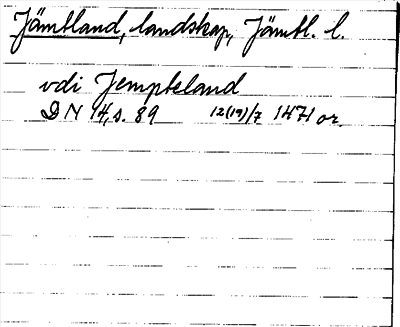 Jämtland, landskap, Jämtl. l.
vdi Jempteland
DN 14, s. 89 12(19)/7 1471 or.